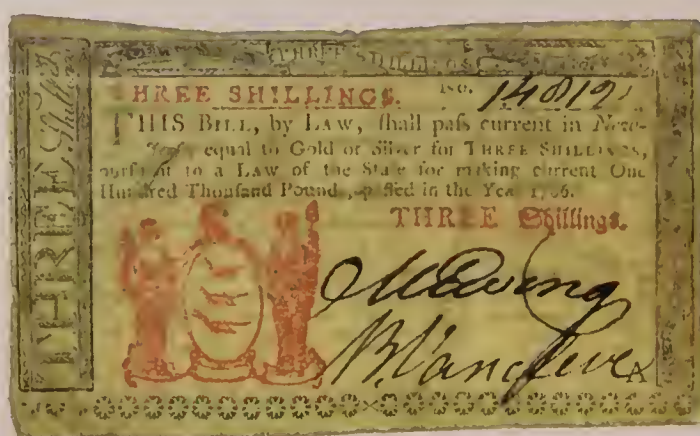 THREE SHILLINGS
THREE SHILLINGS. No. 14812
THIS BILL, by LAW, ſhall paſs current in New-
Jerſey equal to Gold or Silver for THREE SHILLINGS,
purſuant to a Law of the State for making current One
Hundred Thouſand Pounds, paſſed in the Year 1786.
THREE Shillings.
M Ewing
B. Vancleve
THREE
Shillings